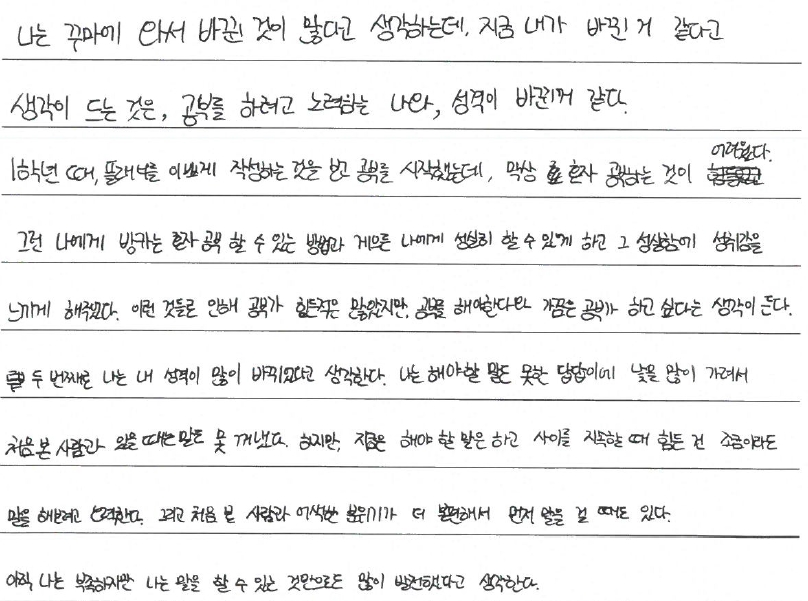 나는 꾸마에 와서 바뀐 것이 많다고 생각하는데, 지금 내가 바뀐 거 같다고
생각이 드는 것은, 공부를 하려고 노력하는 나와, 성격이 바뀐거 같다.
1학년 때, 플래너를 이쁘게 작성하는 것을 보고 공부를 시작했는데, 막상 혼자 공부하는 것이 어려웠다.
그런 나에게 방카는 혼자 공부 할 수 있는 방법과 게으른 나에게 성실히 할 수 있게 하고 그 성실함에 성취감을
느끼게 해주었다. 이런 것들로 인해 공부가 힘든적은 많았지만, 공부를 해야한다와 가끔은 공부가 하고 싶다는 생각이 든다.
두 번째로 나는 내 성격이 많이 바뀌었다고 생각한다. 나는 해야할 말도 못한 답답이에 낯을 많이 가려서
처음 본 사람과 있을 때는 말도 못 꺼냈다. 하지만, 지금은 해야 할 말은 하고 사이를 지속할 때 힘든 건 조금이라도
말을 해보려고 노력한다. 그리고 처음 본 사람과 어색한 분위기가 더 불편해서 먼저 말을 걸 때도 있다.
아직 나는 부족하지만 나는 말을 할 수 있는 것만으로도 많이 발전했다고 생각한다.